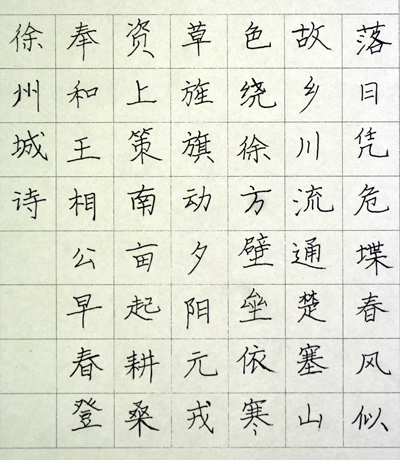 落日凭危堞春风似
故乡川流通楚塞山
色绕徐方壁垒依寒
草旌旗动夕阳元戎
资上策南亩起耕桑
奉和王相公早春登
徐州城诗